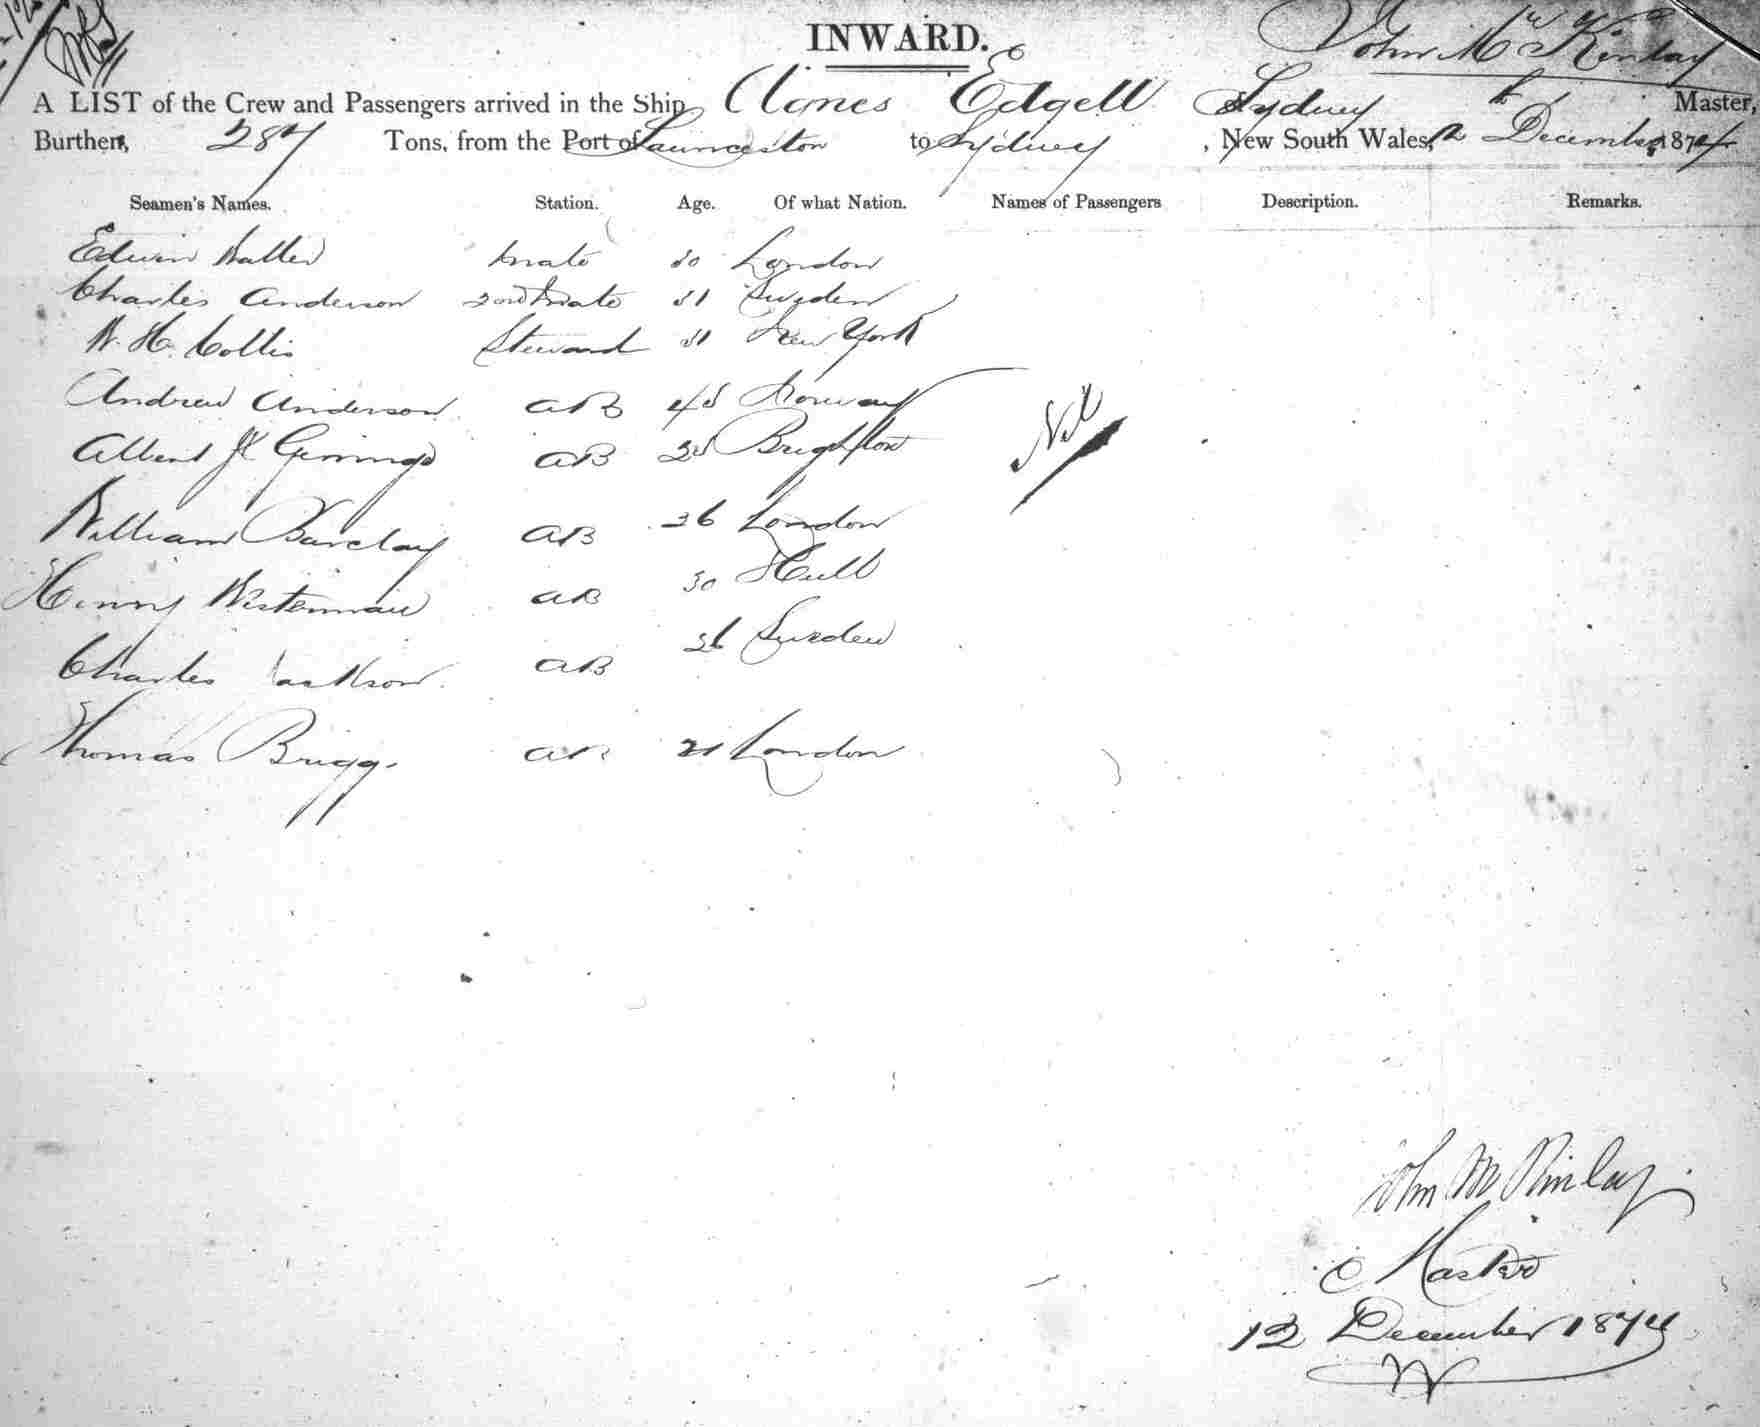 INWARD.
John McKinlay
A LIST of the Crew and Passengers arrived in the Ship Agnes Edgell Sydney Master,
Burthen, 287 Tons, from the Port of Launceston to Sydney, New South Wales, 12th December 1874
Seamen's Names. Station. Age. Of what Nation. Names of Passengers Description. Remarks.
Edwin Waller mate 30 London
Charles Anderson 2nd mate 31 Sweden
W. H. Collis Steward 31 New York
Andrew Anderson AB 45 Norway
Nil
Albert AB 25 Brighton
William Barclay AB 26 London
Henry Westerman AB 30 Hull
Charles Jackson AB 26 Sweden
Thomas Briggs AB 21 London
John McKinlay
Master
12 December 1874